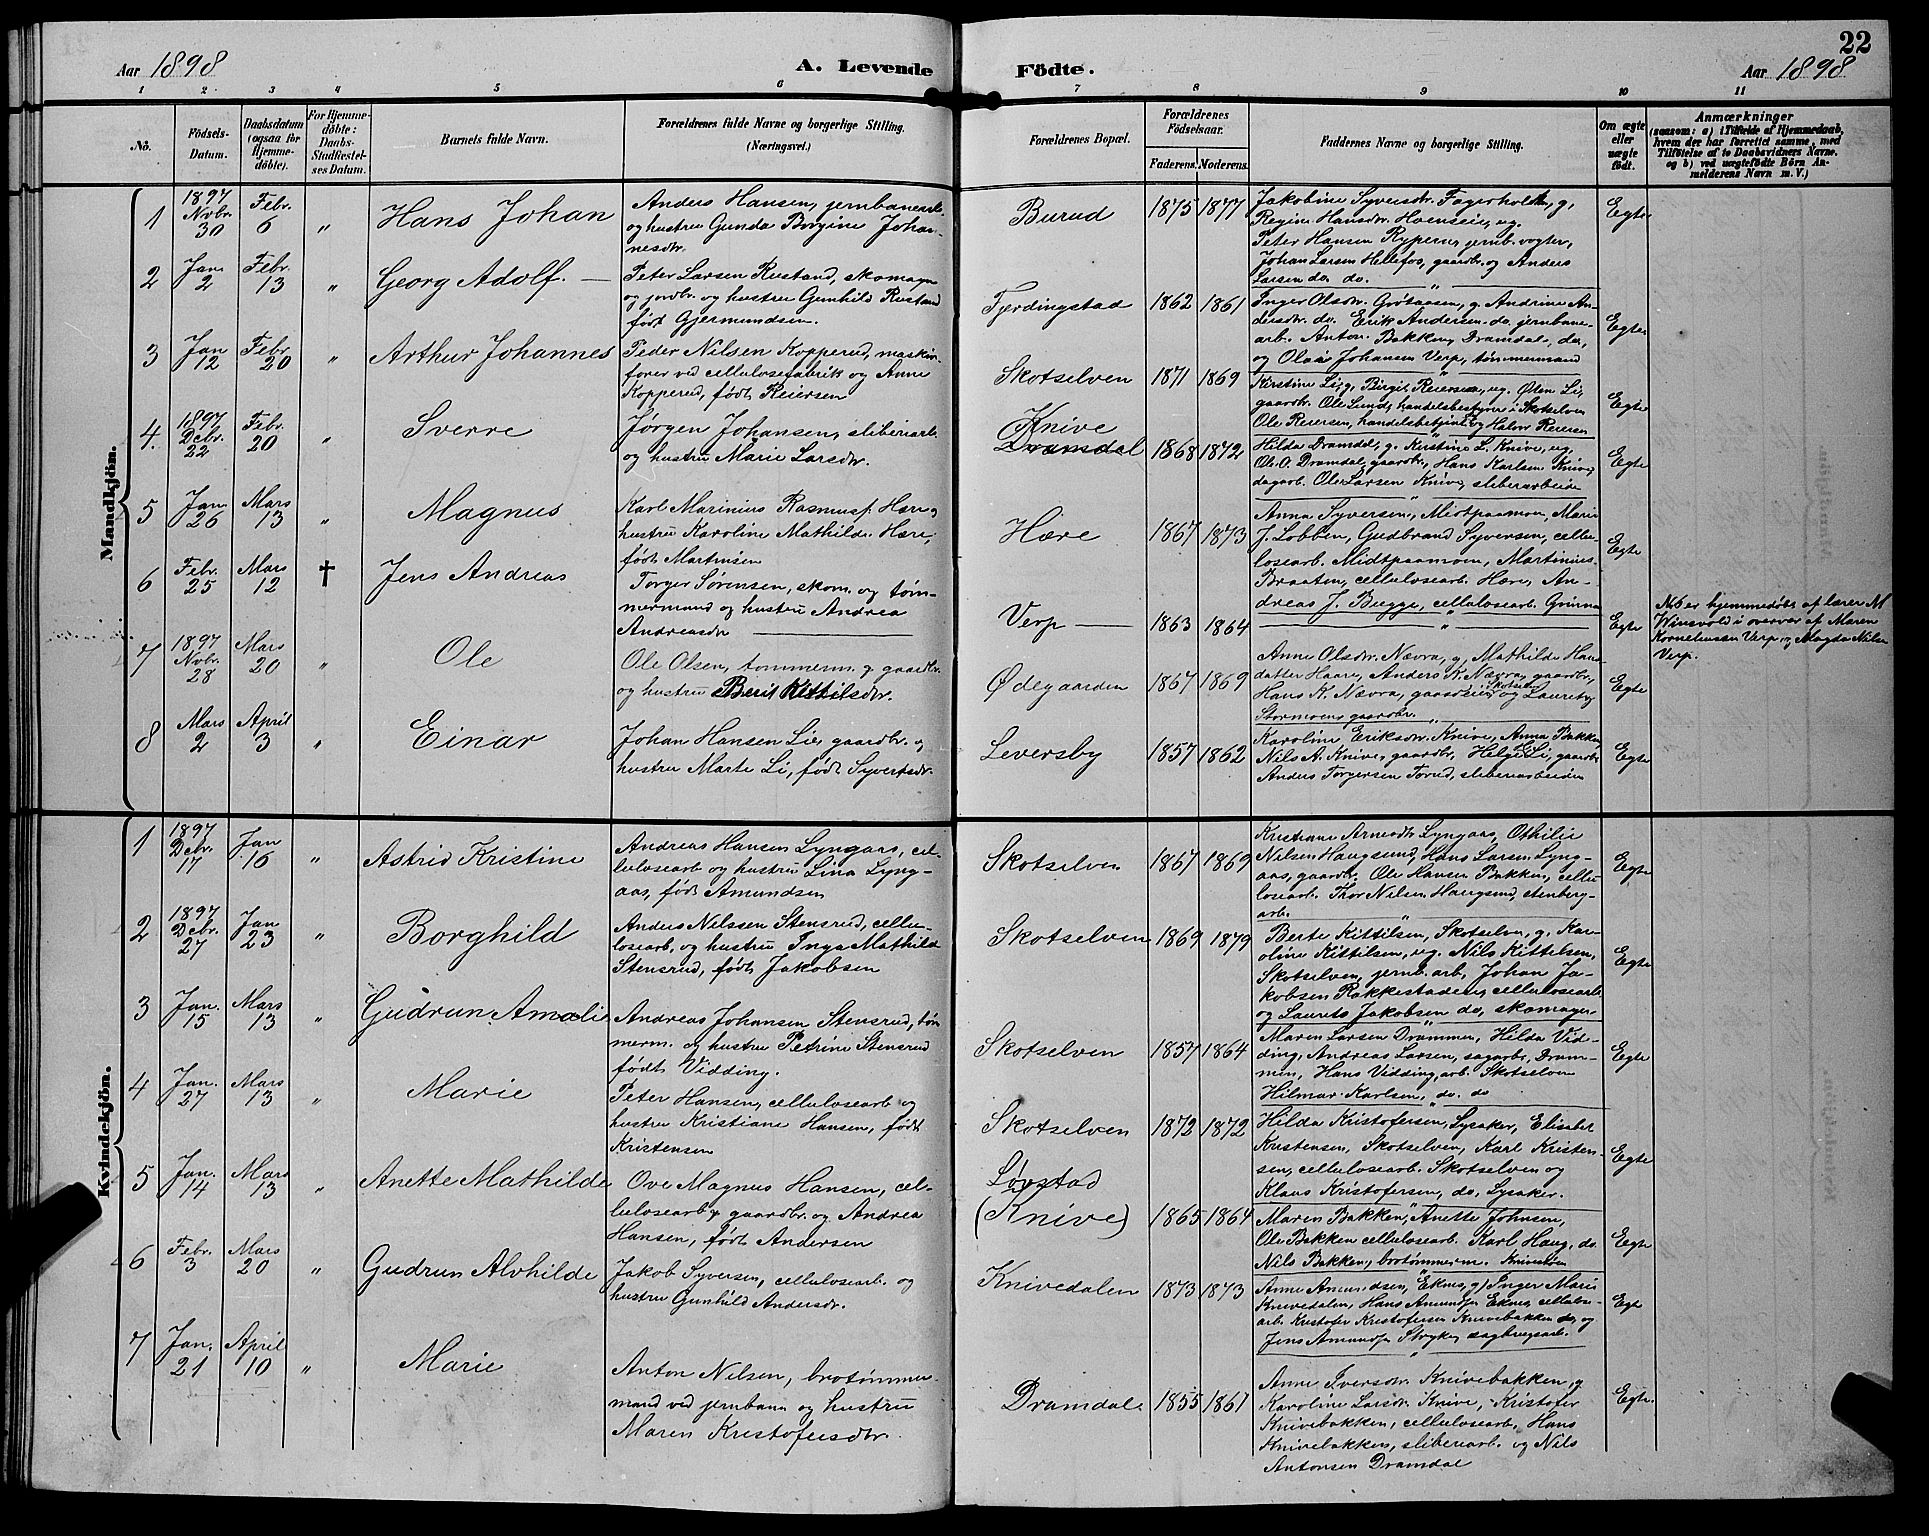 22
Aar 1898
A. Levende
Födte.
Aar 1898
1 2 3 4 5 6 7 8 9 10 11
No.
Födsels-
Datum.
Daabsdatum
(ogsaa for
Hjemme-
döbte).
For Hjemme-
döbte:
Daabs-
Stadfæstel-
ses Datum.
Barnets fulde Navn.
Forældrenes fulde Navne og borgerlige Stilling.
(Næringsvei.)
Forældrenes Bopæl.
Forældrenes
Födselsaar.
Faderens. Moderens.
Faddernes Navne og borgerlige Stilling.
Om ægte
eller
uægte
födt.
Anmærkninger
(saasom: a) i Tilfælde af Hjemmedaab,
hvem der har forrettet samme, med
Tilföielse af to Daabsvidners Navne,
og b) ved uægtefödte Börn An-
melderens Navn m. V.)
Mandkjön.
1
1897
Novbr.
30
Febr.
6
"
Hans Johan
Anders Hansen, jernbanearb.
og hustru Gunda Borgine Johan-
nesdtr.
Burud
1875 1877
Jakobine Syversdr. Fagerholt, g,
Regine Hansdr. Hvenseie, ug.
Peter Hansen Rypern, jernb.vogter,
Johan Larsen Hellefos, gaardbr. og Anders
Larsen do. do.
Egte
2
Jan.
2
Febr.
13
"
Georg Adolf. —
Peter Larsen Rustand, skomager
og jordbr. og hustru Gunhild Rustand
født Gjermundsen.
Fjerdingstad
1862 1861
Inger Olsdr. Grötaasen, g. Andrine An-
dersdr. do. Erik Andersen do. jernbane-
arb. Anton Bakken, Dramdal, do,
og Olaf Johansen Verp, tömmermand
Egte
3
Jan
12
Febr.
20
"
Arthur Johannes
Peder Nilsen Kopperud, maskin-
fører ved cellulosefabrik og Anne
Kopperud, født Reiersen
Skotselven
1871 1869
Kirstine Li, g. Birgit Reiersen, ug. Østen Li,
gaardbr. Ole Lund, handelsbestyrer i Skotselven
Ole Reiersen, handelsbetjent og Halvor Reiersen
Egte
4.
1897
Debr.
22
Febr.
20
"
Sverre
Jørgen Johansen, sliberiarb.
og hustru Marie Larsdtr.
Knive
Dramdal
1868 1872
Hilda Dramdal, g. Kirstine L. Knive, ug,
Ole O. Dramdal, gaardbr., Hans Karlsen Knive,
dagarb. Ole Larsen Knive, sliberiarbeider
Egte
5
Jan.
26
Mars
13
"
Magnus
Karl Marinius Rasmusf. Hære og
hustru Karoline Mathilde Hære,
født Martinsen
Hære
1867 1873
Anna Syversen, Midtpaamoen, Marie
J. Lobben, Gudbrand Syversen, cellu-
losearb. Midtpaamoen, Martinius
Braaten, cellulosearb. Hære, An-
dreas J. Bugge, cellulosearb.
Egte
6
Febr.
25
Mars
12
†
Jens Andreas
Torger Sørensen, skom. og töm-
mermand og hustru Andrea
Andreasdr
Verp —
1863 1864
"
Egte
No 6 er hjemmedøbt af lærer M
Winsvold i overvær af Maren
Kornelinssen Verp, og Magda Nilsen
Verp.
7
1897
Nvbr.
28
Mars
20
"
Ole
Ole Olsen, tömmerm. og gaardbr.
og hustru Berit Kittilsdr.
Ødegaarden
1867 1869
Anne Olsdr. Nævra, g, Mathilde Hans-
datter Haare, Anders K. Nævra, gaardbr,
Hans K. Nævra, gaardeier og Laurits
Stormoen, gaardbr.
Egte
8
Mars
2
April
3
"
Einar
Johan Hansen Lie, gaardbr. og
hustru Marte Li, født Syvertsdr.
Leversby
1857 1862
Karoline Eriksdr. Knive, Anna Bakken
Nils A. Knive, gaardbr, Helge Li, gaardbr
Anders Torgersen Torud, sliberiarbeider
Egte
Kvindekjön.
1
1897
Debr.
17
Jan
16
"
Astrid Kristine
Andreas Hansen Lyngaas, cel-
lulosearb og hustru Lina Lyng-
aas, født Amundsen
Skotselven
1867 1869
Kristiane Arnesdtr Lyngaas, Othilie
Nilsen Haugsund, Hans Larsen Lyng-
aas, gaardbr. Ole Hansen Bakken, cellu-
losearb. Thor Nilsen Haugsund, stenberg-
arb.
Egte
2
1897
Debr.
27
Jan
23
"
Borghild
Anders Nilssen Stensrud, cellu-
losearb, og hustru Inga Mathilde
Stensrud, født Jakobsen
Skotselven
1869 1879
Berte Kittilsen, Skotselven, g. Kar-
oline Kittilsen, ug. Nils Kittelsen,
Skotselven, jernb.arb, Johan Ja-
kobsen Rakkestaden, cellulosearb
og Laurits Jakobsen do, skomager
Egte
3
Jan.
15
Mars
13
"
Gudrun Amalie
Andreas Johansen Stensrud, töm
merm. og hustru Petrine Stensrud
født Vidding.
Skotselven
1857 1864
Maren Larsen Drammen, Hilda Vid-
ding, Andreas Larsen, sagarb, Dram-
men, Hans Vidding, arb. Skotselven
Hilmar Karlsen, do. do
Egte
4
Jan.
27
Mars
13
"
Marie
Peter Hansen, cellulosearb og
hustru Kristiane Hansen, født
Kristensen
Skotselven
1872 1872
Hilda Kristofersen, Lysaker, Elisabet
Kristensen, Skotselven, Karl Kristen-
sen, cellulosearb. Skotselven og
Klaus Kristofersen, do, Lysaker.
Egte
5
Jan.
14
Mars
13
"
Anette Mathilde
Ove Magnus Hansen, cel-
lulosearb og gaardbr. og Andrea
Hansen, født Andersen
Løvstad
(Knive)
1865 1864
Maren Bakken, Anette Johnsen,
Ole Bakken cellulosearb. Karl Haug, do.
Nils Bakken, brotømmerm.
Egte
6
Febr.
3
Mars
20
"
Gudrun Alvhilde
Jakob Syversen, cellulosearb. og
hustru Gunhild Andersdr.
Knivedalen
1873 1873
Anne Amundsen, Eknes, g, Inger Marie
Knivedalen, Hans Amundsf Eknes, cellulose-
arb. Kristofer Kristofersen Knivebakken do, og
Jens Amundsf Stryken sagbrugsarb.
Egte
7
Jan.
21
April
10
"
Marie
Anton Nilsen, brotømmer-
mand ved jernbanen og hustru
Maren Kristofersdtr.
Dramdal.
1855 1861
Anne Iversdr. Knivebakken, g
Karoline Larsdr. Knive, Kristofer
Knivebakken, cellulosearb, Hans
Knivebakken, sliberiarb. og Nils
Antonsen Dramdal
Egte.